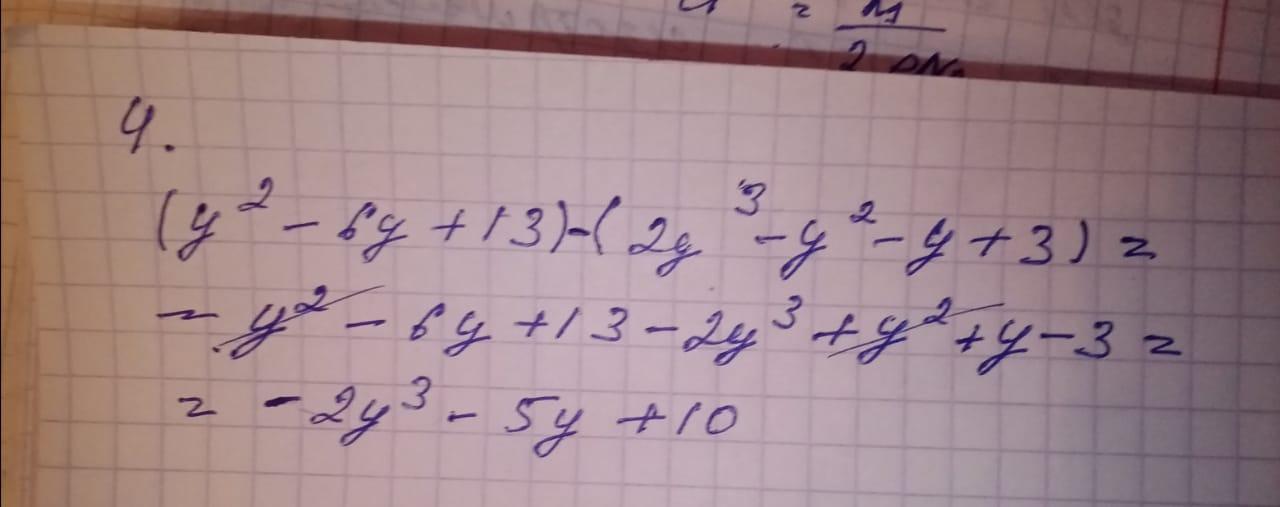 = м
2
4.
(y² - 6y + 13) - (2y³ - y² - y + 3) =
= y² - 6y + 13 - 2y³ + y² + y - 3 =
= - 2y³ - 5y + 10